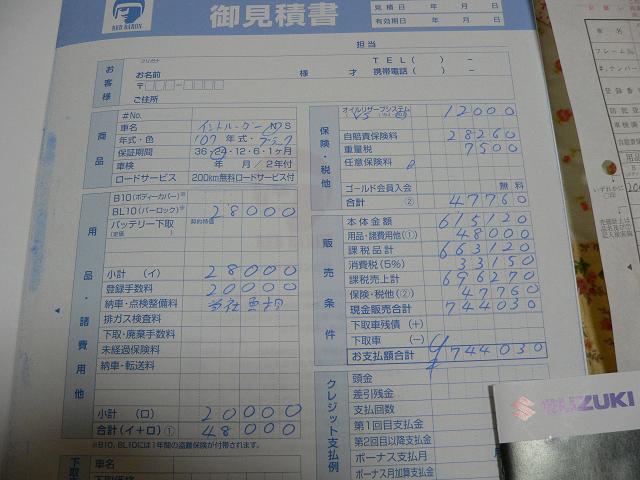 RED BARON
御見積書
見積日 年 月 日
有効期日 年 月 日
担当
お客様
フリガナ
お名前 様 才
TEL( ) -
携帯電話( ) -
〒
ご住所
商品
#No.
車名
年式・色 '07 年式・ブラック
保証期間 36・24・12・6・1ヶ月
車検 年 月/2年付
ロードサービス 200km無料ロードサービス付
用品・諸費用他
B10(ボディーカバー)※
BL10(バーロック)※ 28000
バッテリー下取
小計 (イ) 28000
登録手数料 20000
納車・点検整備料 当社負担
排ガス検査料
下取・廃車手数料
未経過保険料
納車・転送料
小計 (ロ) 20000
合計(イ+ロ)① 48000
※B10、BL10には1年間の盗難保険が付帯されます。
保険・税他
オイルリザーブシステム 12000
自賠責保険料 28260
重量税 7500
任意保険料
ゴールド会員入会 無料
合計 ② 47760
販売条件
本体金額 615120
用品・諸費用他(①) 48000
課税品計 663120
消費税(5%) 33150
課税売上計 696270
保険・税他(②) 47760
現金販売合計 744030
下取車残債 (+)
下取車 (-)
お支払額合計 ¥744030
クレジット支払例
頭金
差引残金
支払回数
第1回目支払金
第2回目以降支払金
ボーナス支払月 月
ボーナス月加算支払金
車名
SUZUKI